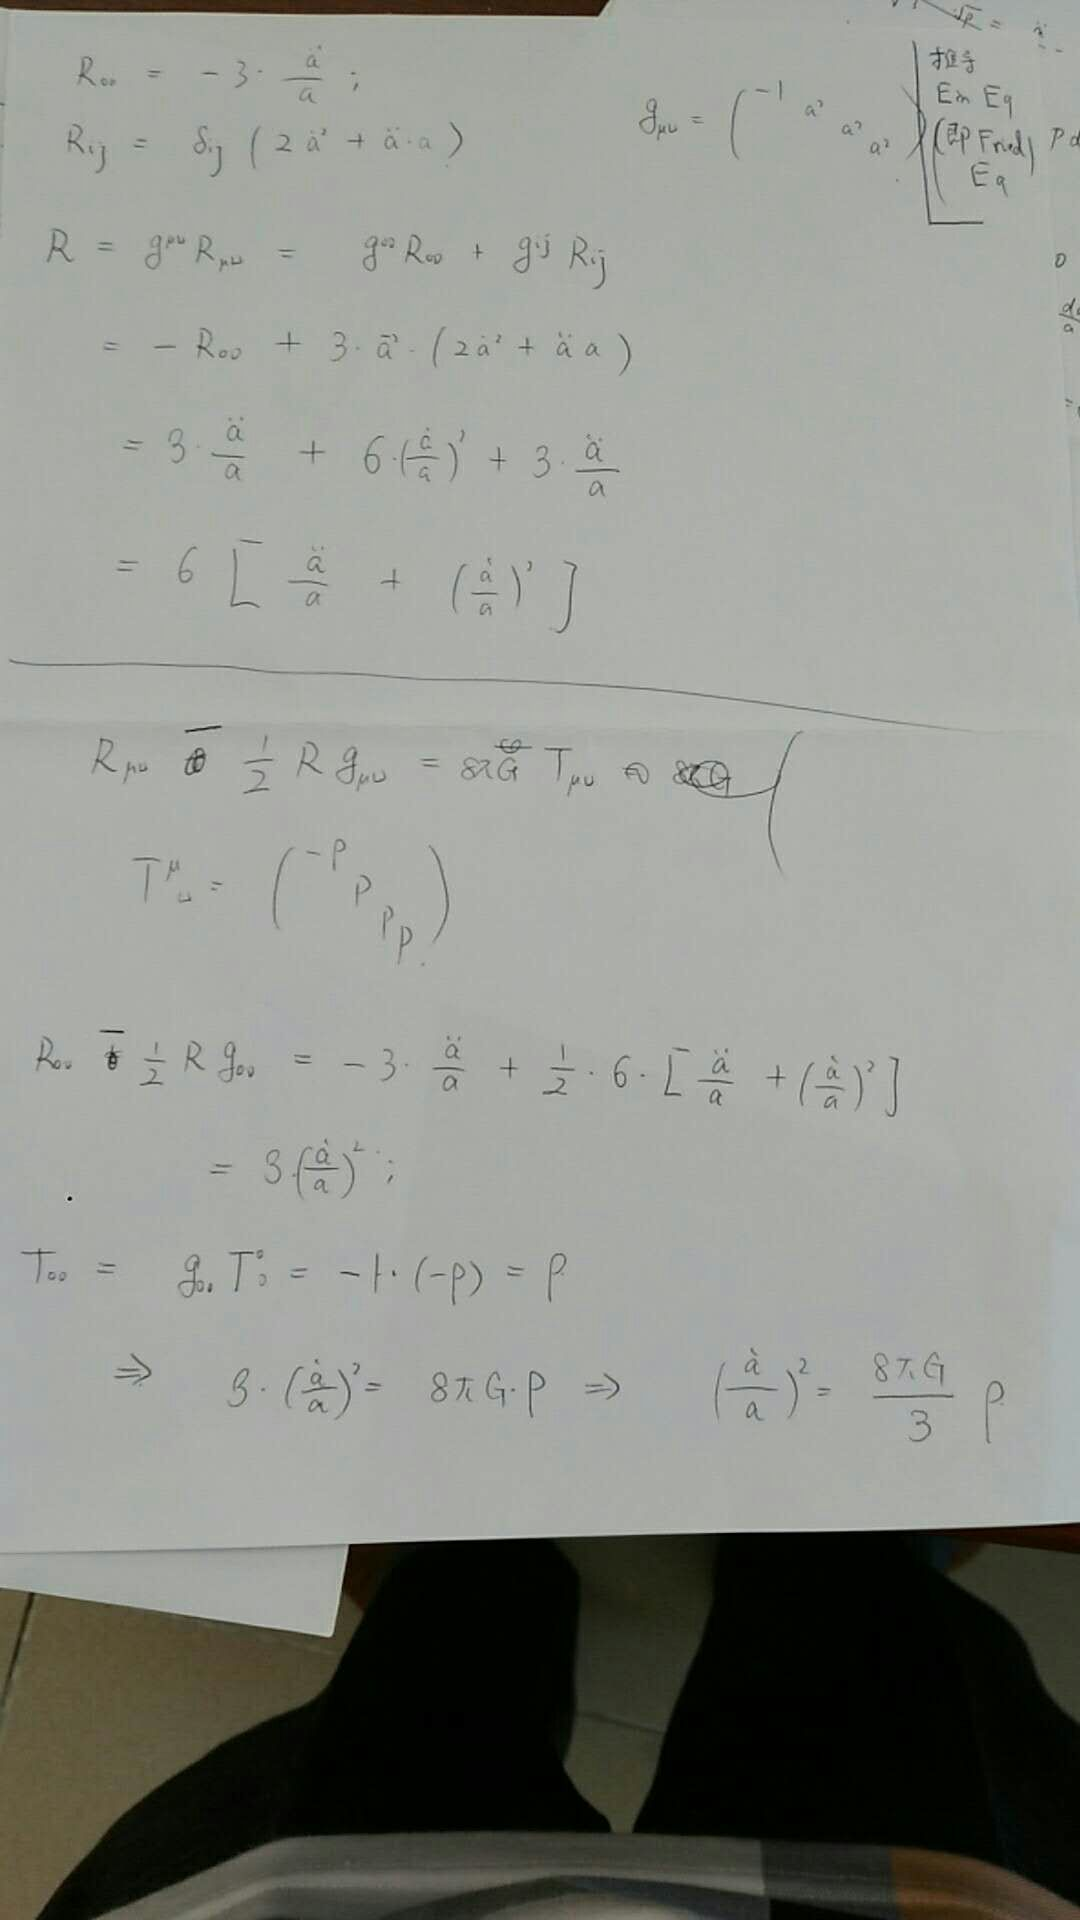 R₀₀ = -3· ä/a ;
R_ij = δ_ij ( 2ȧ² + ä·a )
g_μν = ( -1 a² a² a² )
推导
Ein Eq
(即 Fried)
Eq
R = g^μν R_μν = g⁰⁰ R₀₀ + g^ij R_ij
= - R₀₀ + 3·a⁻²·( 2ȧ² + ä a )
= 3· ä/a + 6·(ȧ/a)² + 3· ä/a
= 6 [ ä/a + (ȧ/a)² ]
R_μν - 1/2 R g_μν = 8πG T_μν
T^μ_ν = ( -ρ P P P )
R₀₀ - 1/2 R g₀₀ = -3· ä/a + 1/2 · 6 · [ ä/a + (ȧ/a)² ]
= 3·(ȧ/a)² ;
T₀₀ = g₀₀ T⁰₀ = -1·(-ρ) = ρ
⇒ 3·(ȧ/a)² = 8πG·ρ ⇒ (ȧ/a)² = 8πG/3 ρ